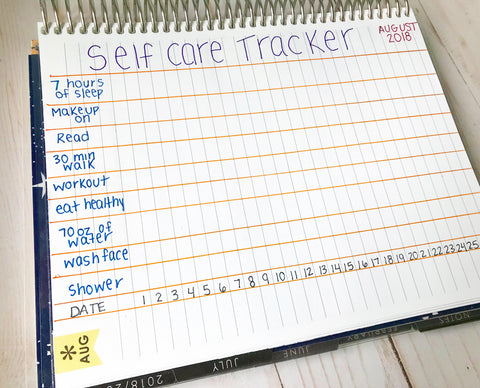 Self care Tracker
AUGUST
2018
7 hours
of sleep
Makeup
on
Read
30 min
walk
workout
eat healthy
70 oz of
water
wash face
shower
DATE 1 2 3 4 5 6 7 8 9 10 11 12 13 14 15 16 17 18 19 20 21 22 23 24 25
* AUG
JULY
JUNE
FEBRUARY
NOTES